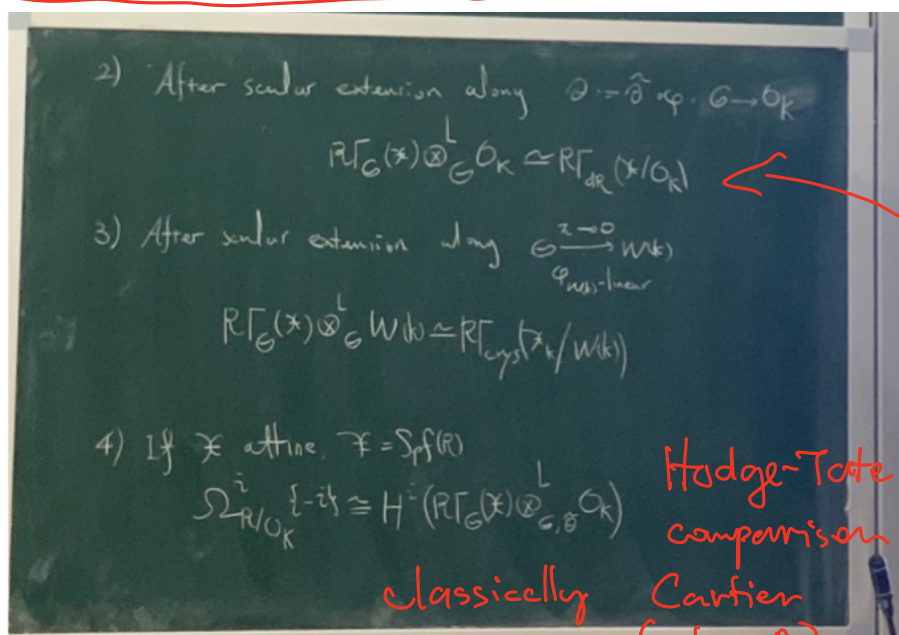 2) After scalar extension along θ := θ̃∘φ : 𝔖→O_K
RΓ_𝔖(𝔛)⊗^L_𝔖 O_K ≃ RΓ_dR(𝔛/O_K)
3) After scalar extension along 𝔖 →^{z→0} W(k)
φ_{W(k)}-linear
RΓ_𝔖(𝔛)⊗^L_𝔖 W(k) ≃ RΓ_crys(𝔛_k/W(k))
4) If 𝔛 affine, 𝔛 = Spf(R)
Ω^i_{R/O_K}{-i} ≅ H^i(RΓ_𝔖(𝔛)⊗^L_{𝔖,θ̃} O_K)
Hodge-Tate
comparison
classically Cartier